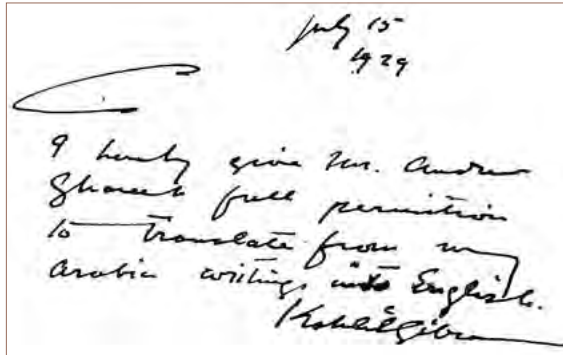 July 15
1929
I hereby give Mr. Andrew
Ghareeb full permition
to translate from my
Arabic writings into English.
Kahlil Gibran